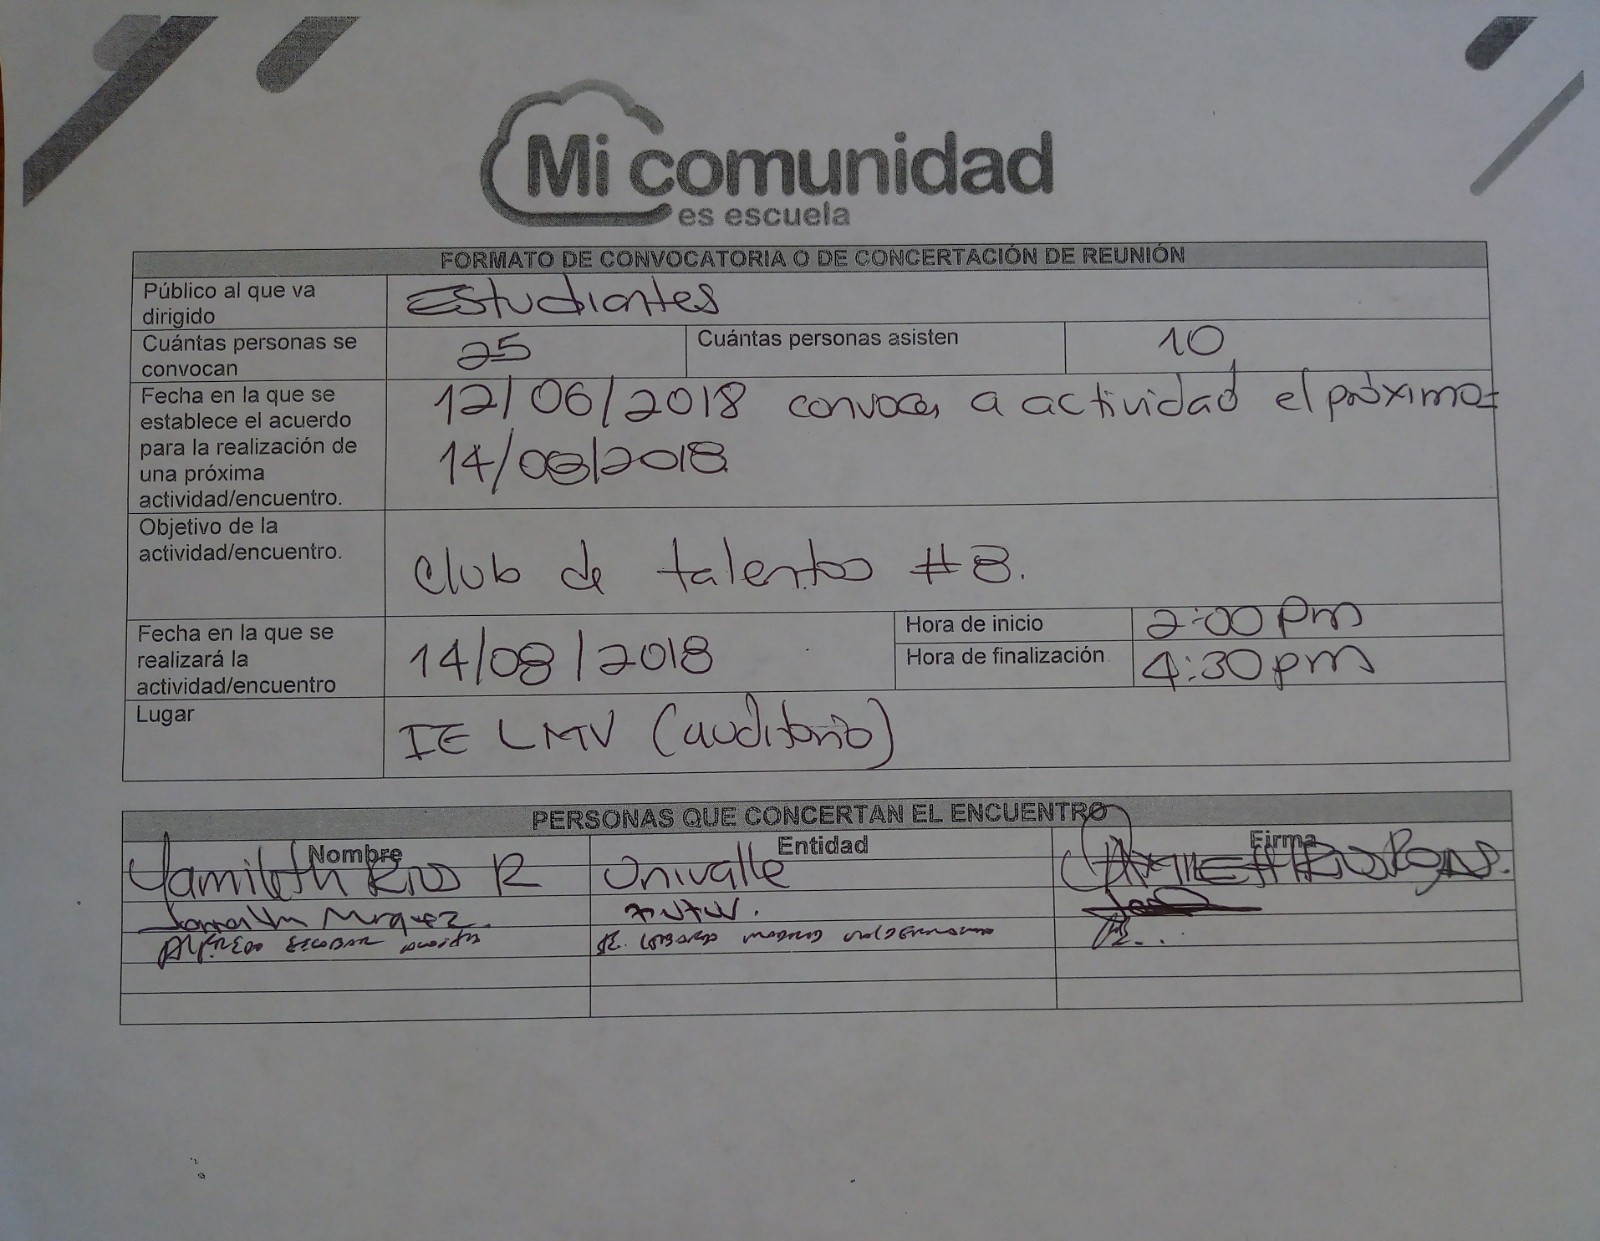 Mi comunidad
es escuela
FORMATO DE CONVOCATORIA O DE CONCERTACIÓN DE REUNIÓN
Público al que va
dirigido
Estudiantes
Cuántas personas se
convocan
25
Cuántas personas asisten
10
Fecha en la que se
establece el acuerdo
para la realización de
una próxima
actividad/encuentro.
12/06/2018 convoca a actividad el próximo
14/08/2018
Objetivo de la
actividad/encuentro.
Club de talentos #8.
Fecha en la que se
realizará la
actividad/encuentro
14/08/2018
Hora de inicio
2:00 pm
Hora de finalización
4:30 pm
Lugar
IE LMV (auditorio)
PERSONAS QUE CONCERTAN EL ENCUENTRO
Nombre Entidad Firma
Yamileth Rios R Univalle
Marquez
ALFREDO ESCOBAR